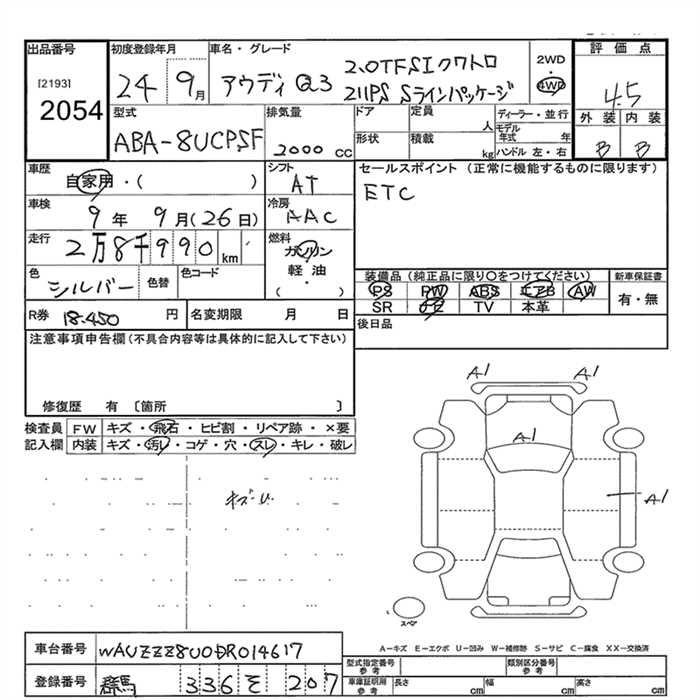 出品番号 初度登録年月 車名・グレード 2WD 評価点
[2193] 2054 24 9月 アウディ Q3 2.0TFSIクワトロ 4WD 4.5
211PS Sラインパッケージ
外装 内装
B B
型式 排気量 ドア 定員 人 ディーラー・並行
ABA-8UCPSF 2000 cc 形状 積載 kg モデル年式 年
ハンドル 左・右
車歴 シフト セールスポイント (正常に機能するものに限ります)
自家用・( ) AT ETC
車検 冷房
9年 9月(26日) AAC
走行 燃料
2万8千990km ガソリン
軽油
・
( )
色 色替 色コード
シルバー
装備品(純正品に限り○をつけてください) 新車保証書
PS PW ABS エアB AW 有・無
SR ナビ TV 本革
R券 18.450 円 名変期限 月 日
後日品
注意事項申告欄(不具合内容等は具体的に記入して下さい)
修復歴 有 〔箇所 〕
検査員 FW キズ・飛石・ヒビ割・リペア跡・×要
記入欄 内装 キズ・汚レ・コゲ・穴・スレ・キレ・破レ
A1 A1
A1
キズ・U
A1
スペア
A-キズ E-エクボ U-凹み W-補修跡 S-サビ C-腐食 XX-交換済
車台番号 WAUZZZ8U0DR014617
型式指定番号 参考 類別区分番号 参考
登録番号 群馬 336 そ 207
車庫証明用 参考 長さ cm 幅 cm 高さ cm